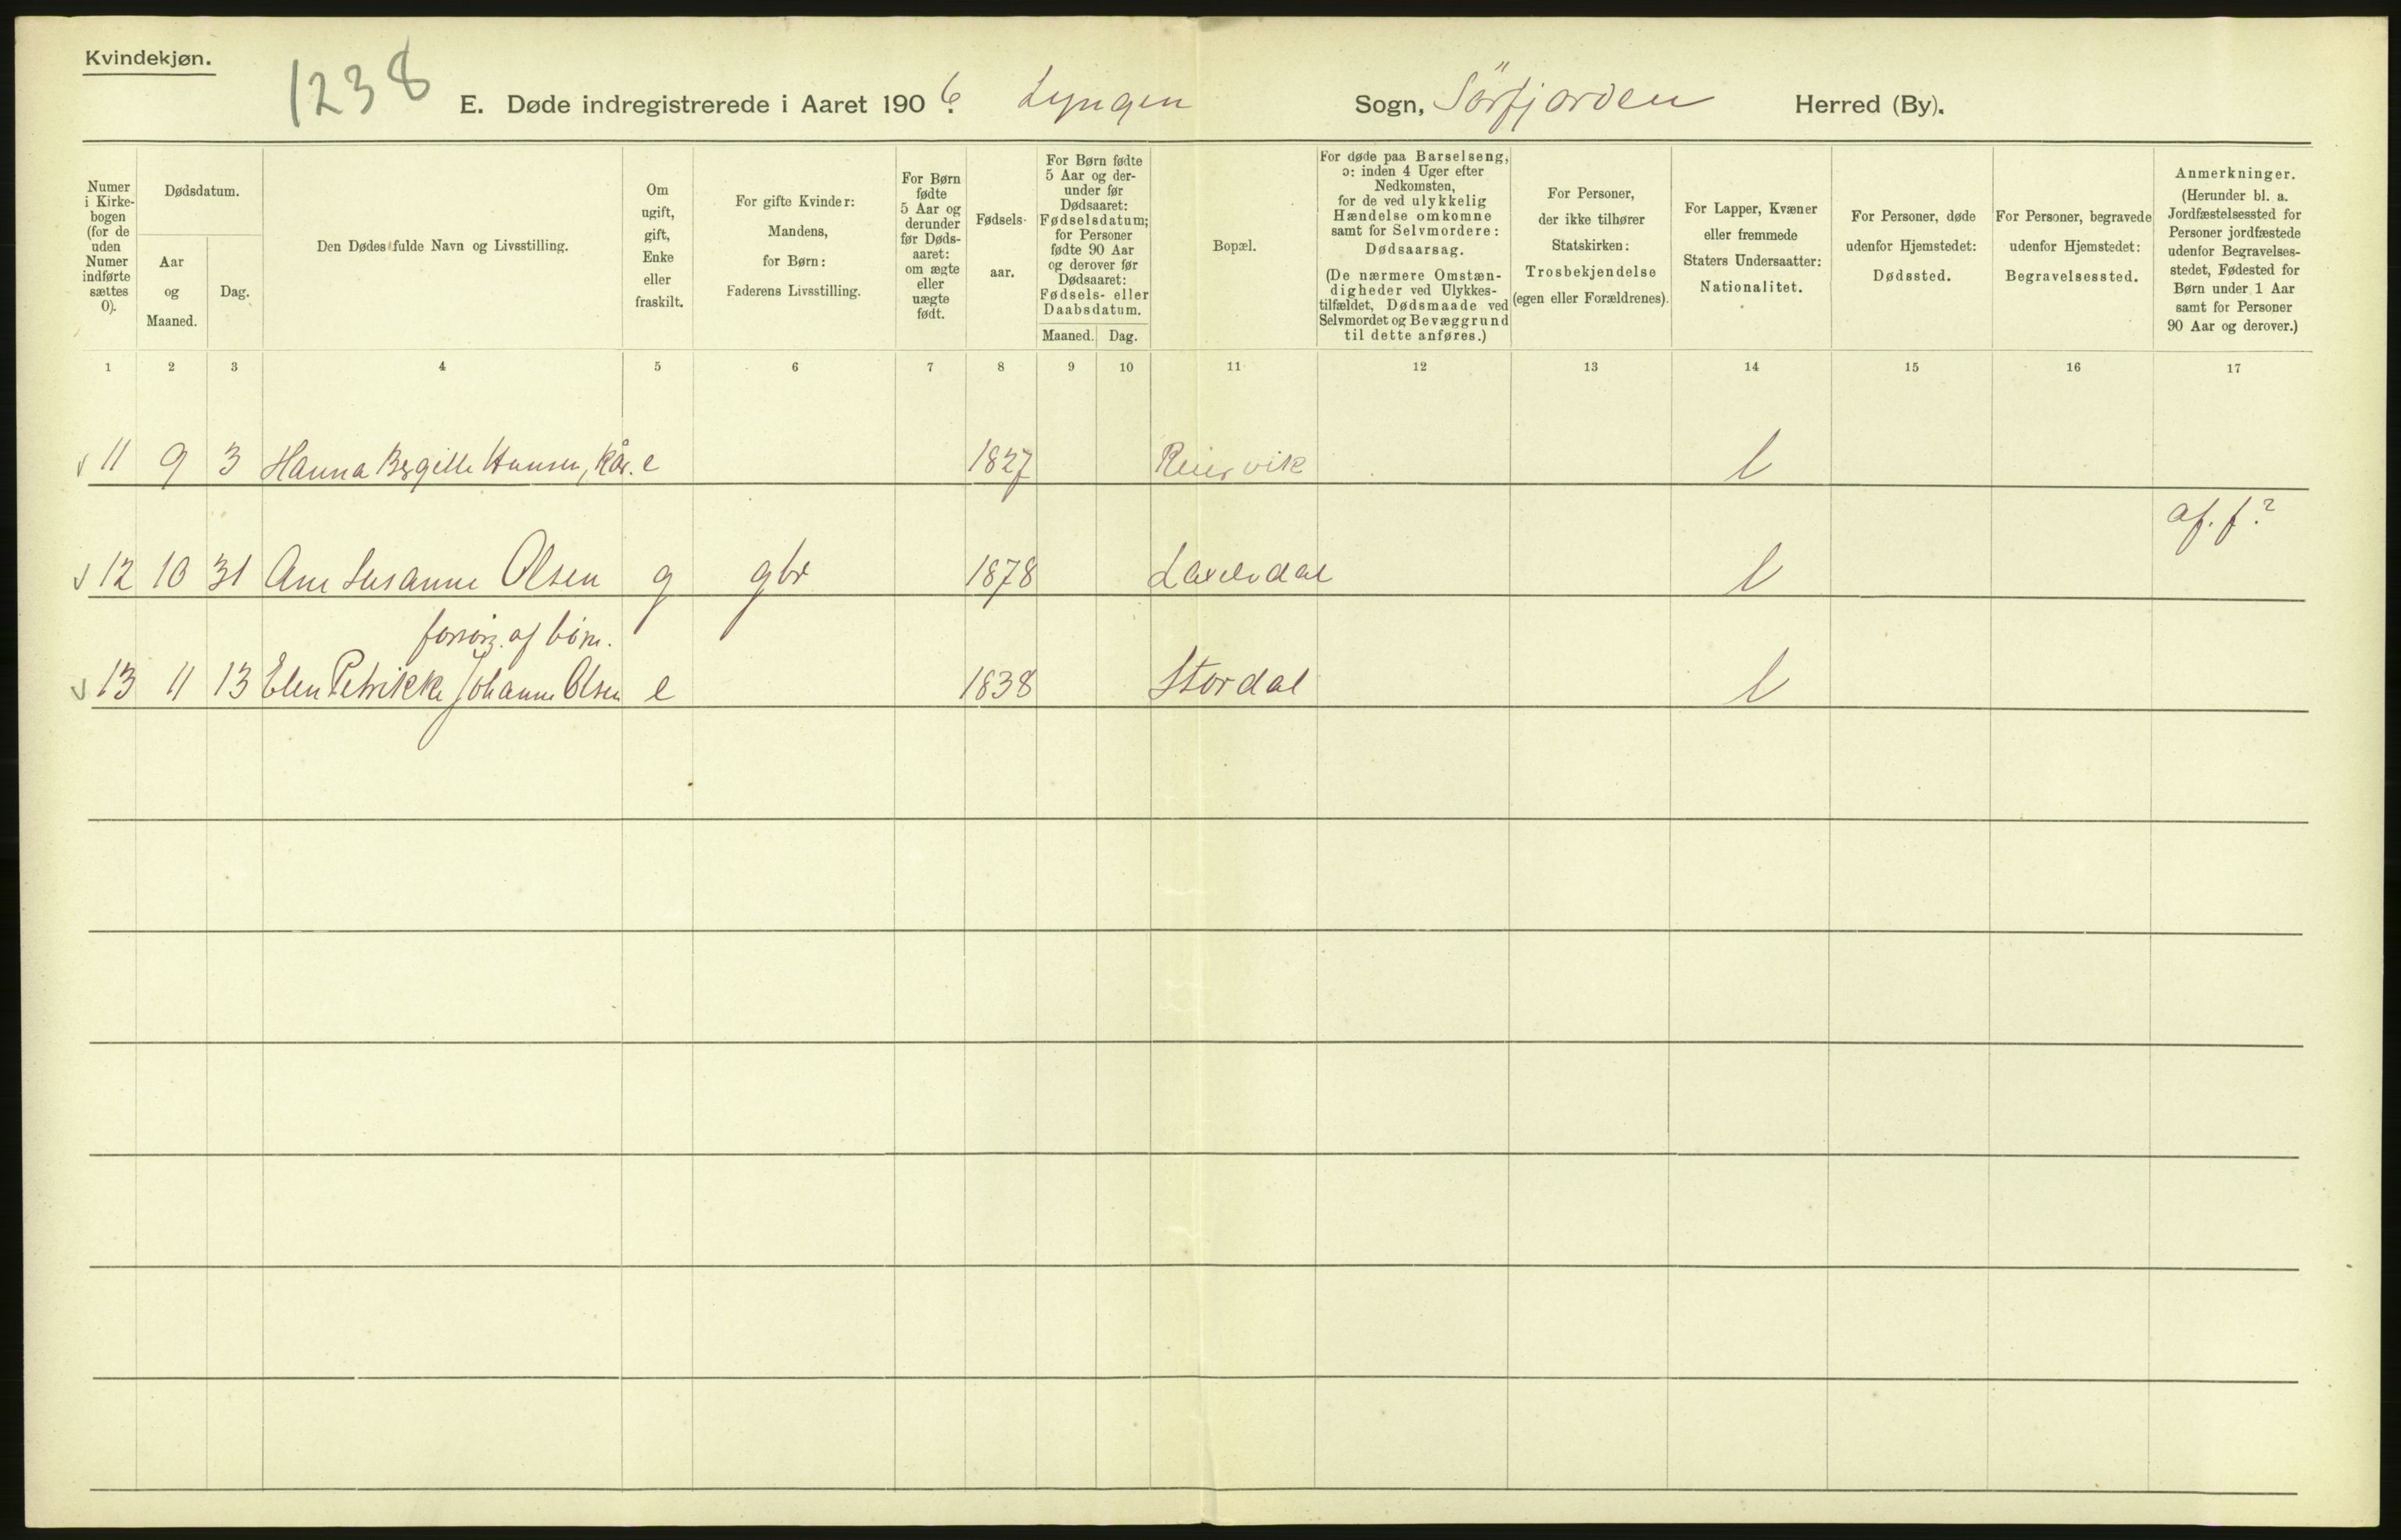 Kvindekjøn.
1238
E. Døde indregistrerede i Aaret 1906. Lyngen Sogn, Sörfjorden Herred (By).
Numer i Kirke-bogen (for de uden Numer indførte sættes 0).
Dødsdatum.
Aar og Maaned.
Dag.
Den Dødes fulde Navn og Livsstilling.
Om ugift, gift, Enke eller fraskilt.
For gifte Kvinder: Mandens, for Børn: Faderens Livsstilling.
For Børn fødte 5 Aar og derunder før Døds-aaret: om ægte eller uægte født.
Fødsels-aar.
For Børn fødte 5 Aar og der-under før Dødsaaret: Fødselsdatum; for Personer fødte 90 Aar og derover før Dødsaaret: Fødsels- eller Daabsdatum.
Maaned. Dag.
Bopæl.
For døde paa Barselseng, ɔ: inden 4 Uger efter Nedkomsten, for de ved ulykkelig Hændelse omkomne samt for Selvmordere: Dødsaarsag. (De nærmere Omstæn-digheder ved Ulykkes-tilfældet, Dødsmaade ved Selvmordet og Bevæggrund til dette anføres.)
For Personer, der ikke tilhører Statskirken: Trosbekjendelse (egen eller Forældrenes).
For Lapper, Kvæner eller fremmede Staters Undersaatter: Nationalitet.
For Personer, døde udenfor Hjemstedet: Dødssted.
For Personer, begravede udenfor Hjemstedet: Begravelsessted.
Anmerkninger. (Herunder bl. a. Jordfæstelsessted for Personer jordfæstede udenfor Begravelses-stedet, Fødested for Børn under 1 Aar samt for Personer 90 Aar og derover.)
1 2 3 4 5 6 7 8 9 10 11 12 13 14 15 16 17
11 9 3 Hanna Bergitte Hansen, kår. e 1827 Reiervik l
af. f?
12 10 31 Ane Susanne Olsen g gbr 1878 Laxelvdal l
forsörg. af börn.
13 11 13 Elen Petrikke Johanne Olsen e 1838 Stordal l